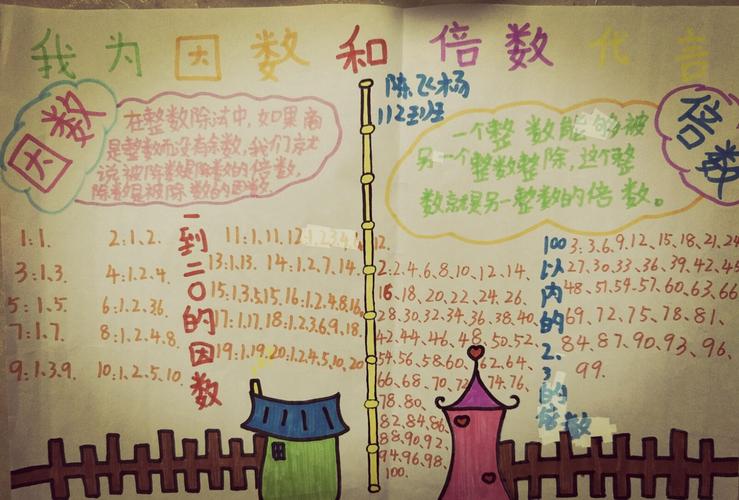 我为因数和倍数代言
陈飞杨
112班
因数
在整数除法中,如果商
是整数而没有余数,我们就
说被除数是除数的倍数,
除数是被除数的因数。
倍数
一个整数能够被
另一个整数整除,这个整
数就是另一整数的倍数。
一到二〇的因数
1:1.
2:1.2.
3:1.3.
4:1.2.4.
5:1.5
6:1.2.3.6.
7:1.7.
8:1.2.4.8.
9:1.3.9.
10:1.2.5.10.
11:1.11.12:1.2.3.4.6.12.
13:1.13. 14:1.2.7.14.
15:1.3.5.15. 16:1.2.4.8.16.
17:1.17. 18:1.2.3.6.9.18.
19:1.19. 20:1.2.4.5.10.20
100以内的2、3的倍数
2:2.4.6.8.10.12.14.
16.18.20.22.24.26.
28.30.32.34.36.38.40.
42.44.46.48.50.52.
54.56.58.60.62.64.
66.68.70.72.74.76.
78.80.
82.84.86.
88.90.92.
94.96.98.
100.
3:3.6.9.12、15.18.21.24
27.30.33、36、39、42、45
48、51、54、57、60、63、66
69、72、75、78、81、
84、87、90、93、96、
99.